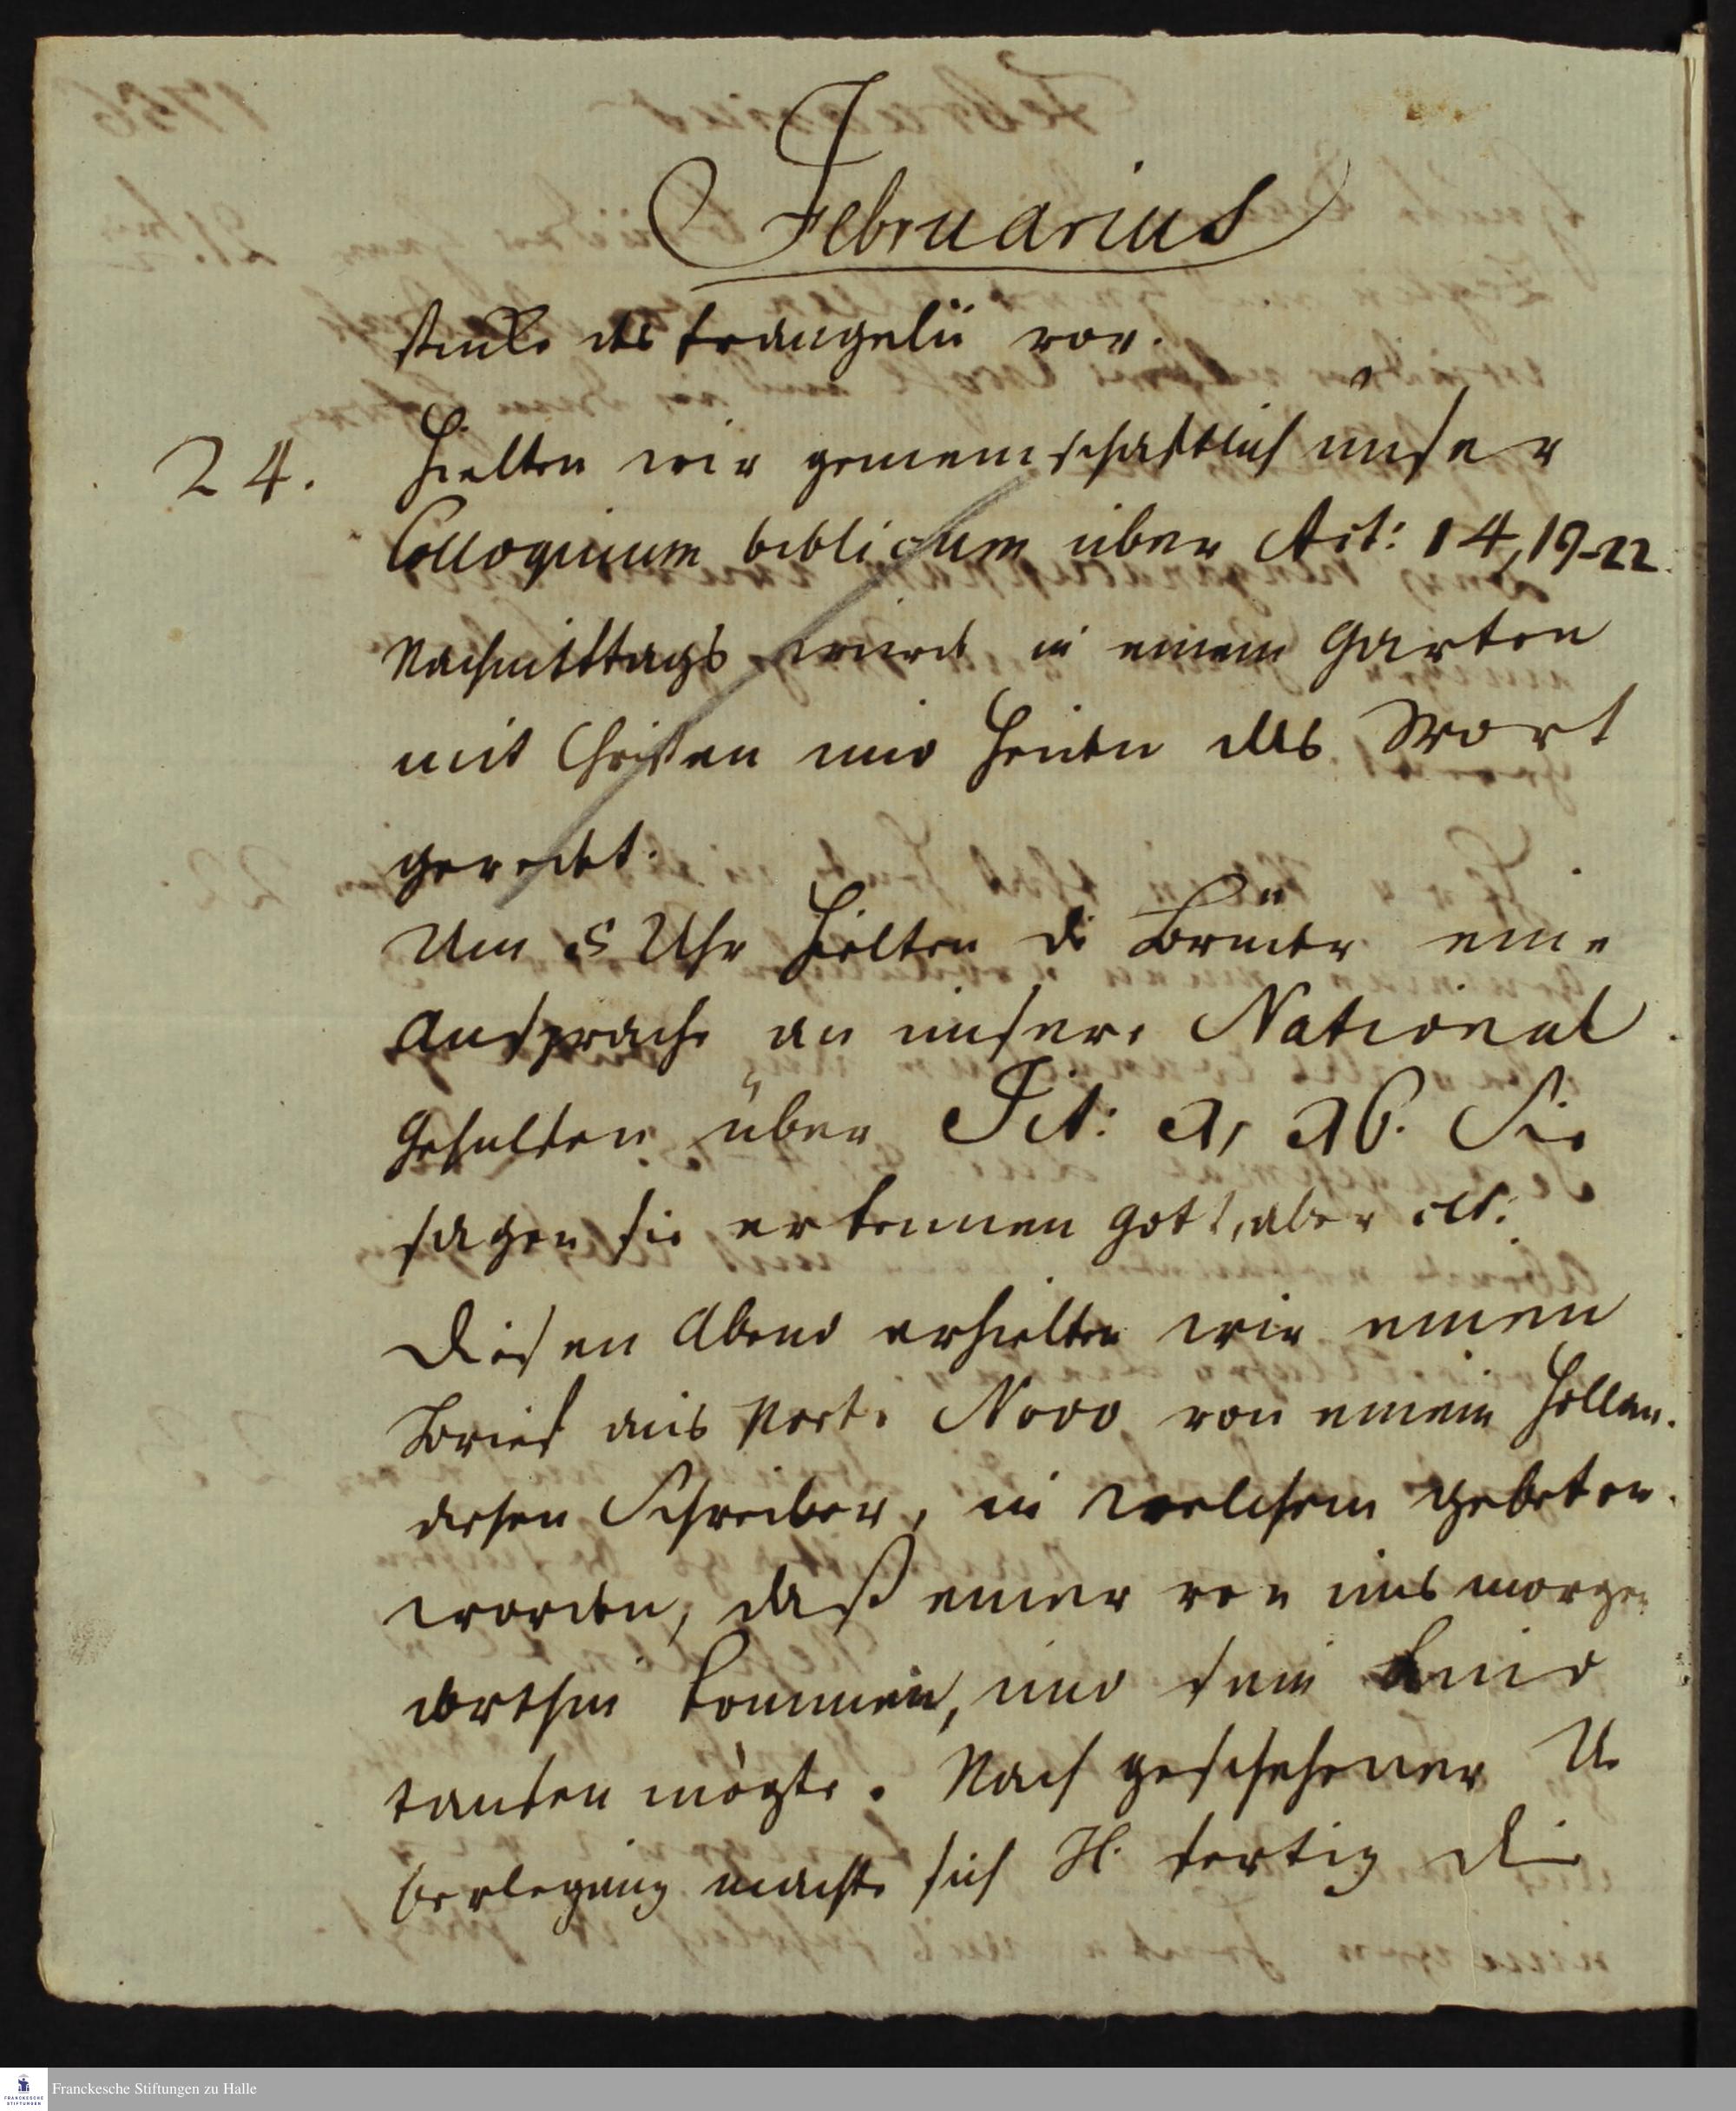 Februarius
stücke des Evangelii vor.
24. Hielten wir gemeinschaftlich unser
Colloquium biblicum über Act: 14, 19-22.
Nachmittags wurde in einem Garten
mit Christen und Heiden das Wort
geredet.
Um 5 Uhr hielten die Brüder eine
Ansprache an unsere National
Gehülfen über Tit: 1, 16. Sie
sagen sie erkennen Gott, aber etc:
Diesen Abend erhielten wir einen
Brief aus Porto Novo von einem Hollän-
dischen Schreiber, in welchem gebeten
worden, daß einer von uns morgen
dorthin kommen, und sein Kind
taufen mögte. Nach geschehener U-
berlegung machte sich H. fertig die
Franckesche Stiftungen zu Halle
FRANCKESCHE STIFTUNGEN